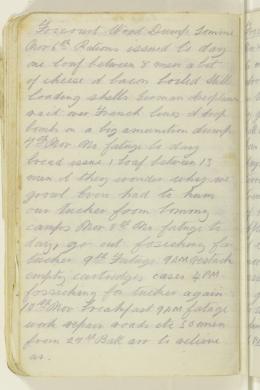 Fricourt Wood Dump Somme
Nov 6th Rations issued to day
one loaf between 8 men a bit
of cheese & bacon boiled still
loading shells German aeroplanes
raid over French lines & drop
bombs on a big amunition dump
7th Nov No fatigue to day
bread issue 1 loaf between 13
men & they wonder why we
growl even had to hum
our tucker from tommy
camps Nov 8th No fatigue to
day, go out fossicking for
tucker 9th Fatigue 9AM restack
empty cartridges cases 4 PM
fossicking for tucker again
10th Nov Breakfast 9AM fatigue
work repair roads etc 30 men
from 27th Batt arr to relieve
us.